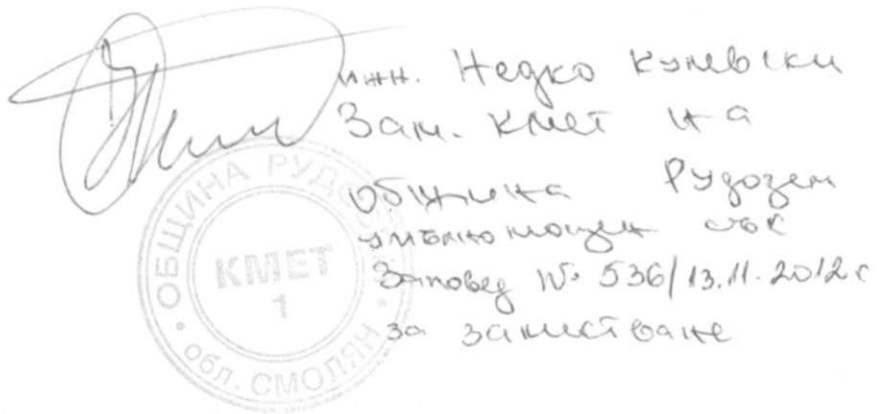 инж. Недко Кулевски
Зам. Кмет на
община Рудозем
упълномощен със
Заповед № 536/13.11.2012г
за заместване
ОБЩИНА РУДОЗЕМ
КМЕТ
1
обл. СМОЛЯН